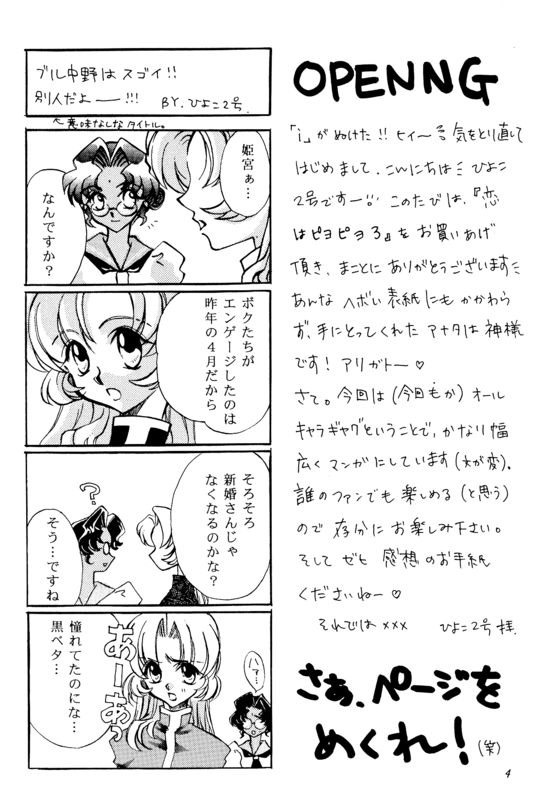 ブル中野は スゴイ!!
別人だよ――!!!
BY. ひよこ2号.
意味なしなタイトル。
姫宮ぁ…
なんですか?
ボクたちが
エンゲージしたのは
昨年の4月だから
そろそろ
新婚さんじゃ
なくなるのかな?
?
そう…ですね
あーあっ
憧れてたのにな…
黒ベタ…
ハァ…
OPENNG
「i」がぬけた!! ヒィ〜 気をとり直して
はじめまして、こんにちは ひよこ
2号です このたびは、『恋
はピヨピヨ3』を お買いあげ
頂き、まことにありがとうございます
あんな ヘボい 表紙にも かかわら
ず、手にとってくれた アナタは 神様
です! アリガトー♡
さて。今回は(今回もか) オール
キャラギャグということで、かなり幅
広くマンガにしています(文が変)。
誰のファンでも 楽しめる(と思う)
ので 存分に お楽しみ下さい。
そして ゼヒ 感想のお手紙
くださいねー♡
それでは ××× ひよこ2号 拝.
さぁ、ページを
めくれ!(笑)
4